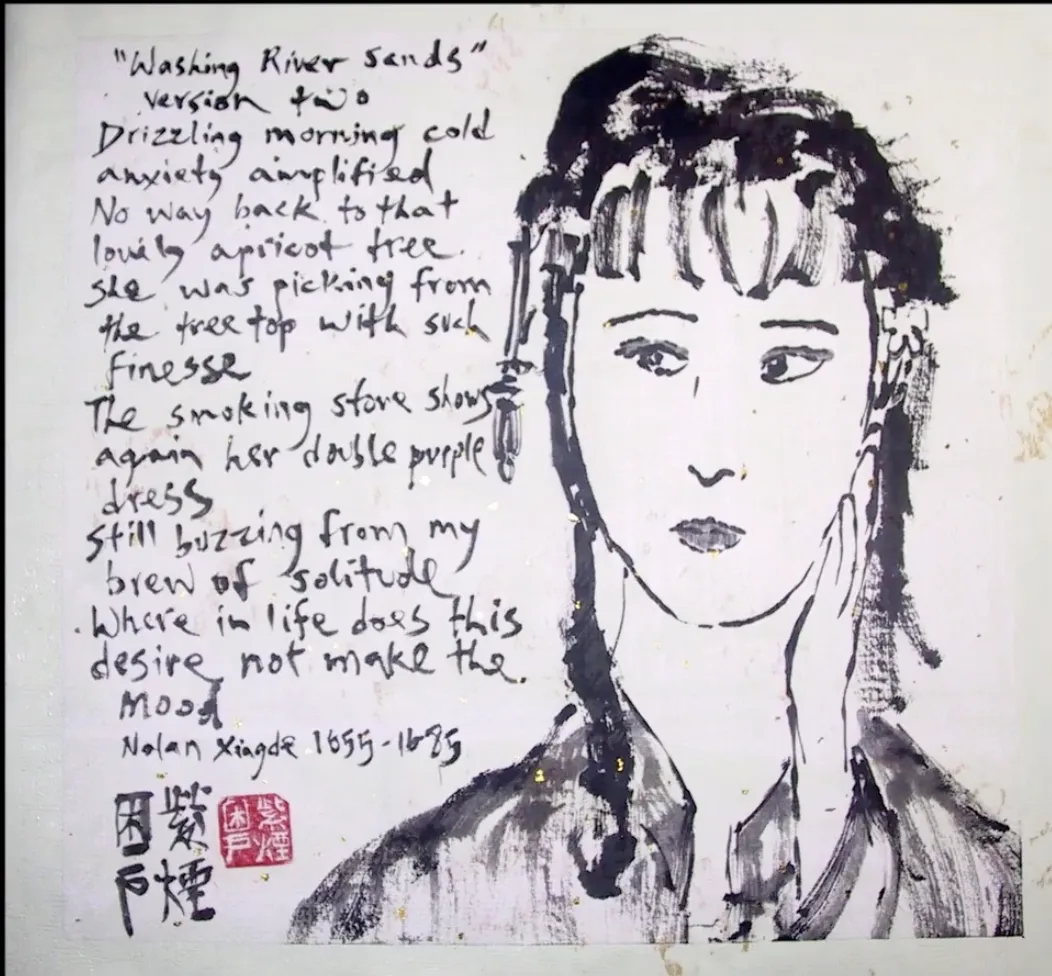 "Washing River Sands"
version two
Drizzling morning cold
anxiety amplified
No way back to that
lovely apricot tree
She was picking from
the tree top with such
finesse
The smoking stove shows
again her double purple
dress
Still buzzing from my
brew of solitude
Where in life does this
desire not make the
mood
Nalan Xingde 1655-1685
紫煙
困戶
紫煙
困戶